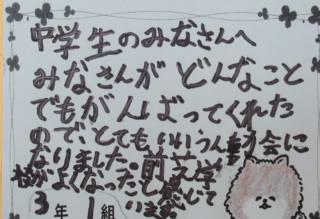 中学生のみなさんへ
みなさんが どんなこと
でもがんばってくれた
ので、とてもいいうん動会に
なりました。前芝学
校がよくなったと感じて
います。
3年1組